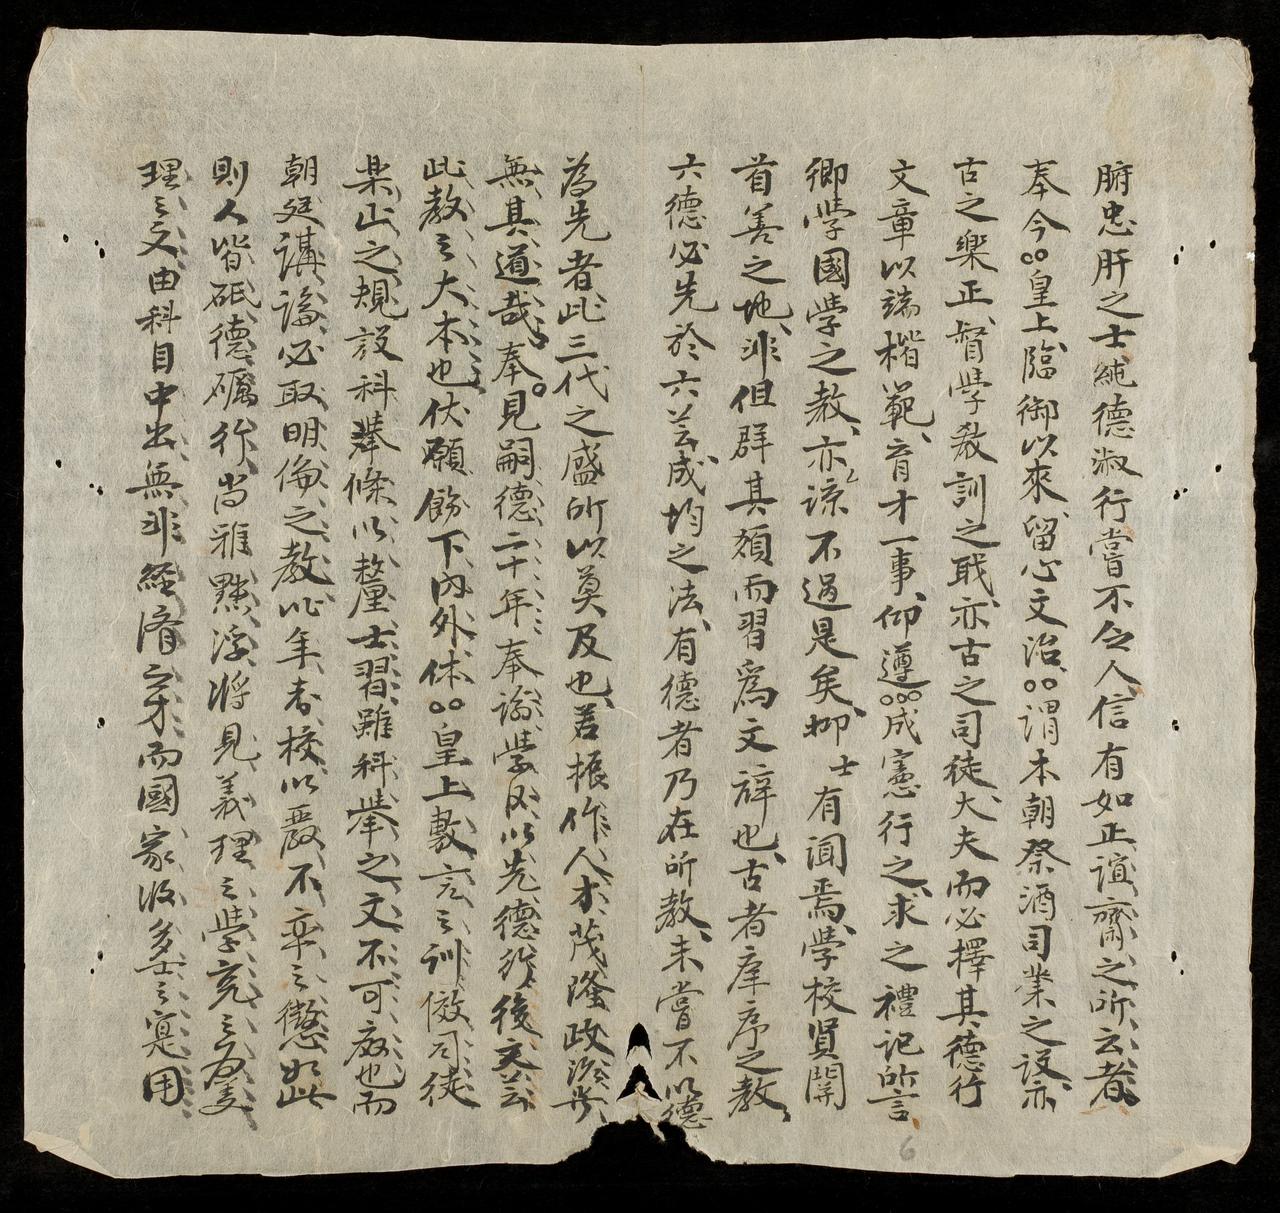 腑忠肝之士純德淑行嘗不令人信有如正誼齋之所云者
奉今皇上臨御以來留心文治謂本朝祭酒司業之設亦
古之樂正督學教訓之職亦古之司徒大夫而必擇其德行
文章以端楷範育才一事仰遵成憲行之求之禮記所言
鄉學國學之教亦諒不過是矣抑士有聞焉學校賢關
首善之地非但群其類而習爲文辭也古者庠序之教
六德必先於六芸成均之法有德者乃在所教未嘗不以德
為先者此三代之盛所以莫及也若振作人才茂隆政治豈
無其道哉奉見嗣德二十年奉諭學臣以先德行後文芸
此教之大本也伏願飭下內外体皇上敷言之訓倣司徒
樂正之規設科舉條以整士習雖科舉之文不可廢也而
朝廷講諭必取明倫之教比年考校以嚴不率之懲如此
則人皆砥德礪行尚雅黜浮將見義理之學充之為
理之文由科目中出無非経濟之才而國家收多士之寔用